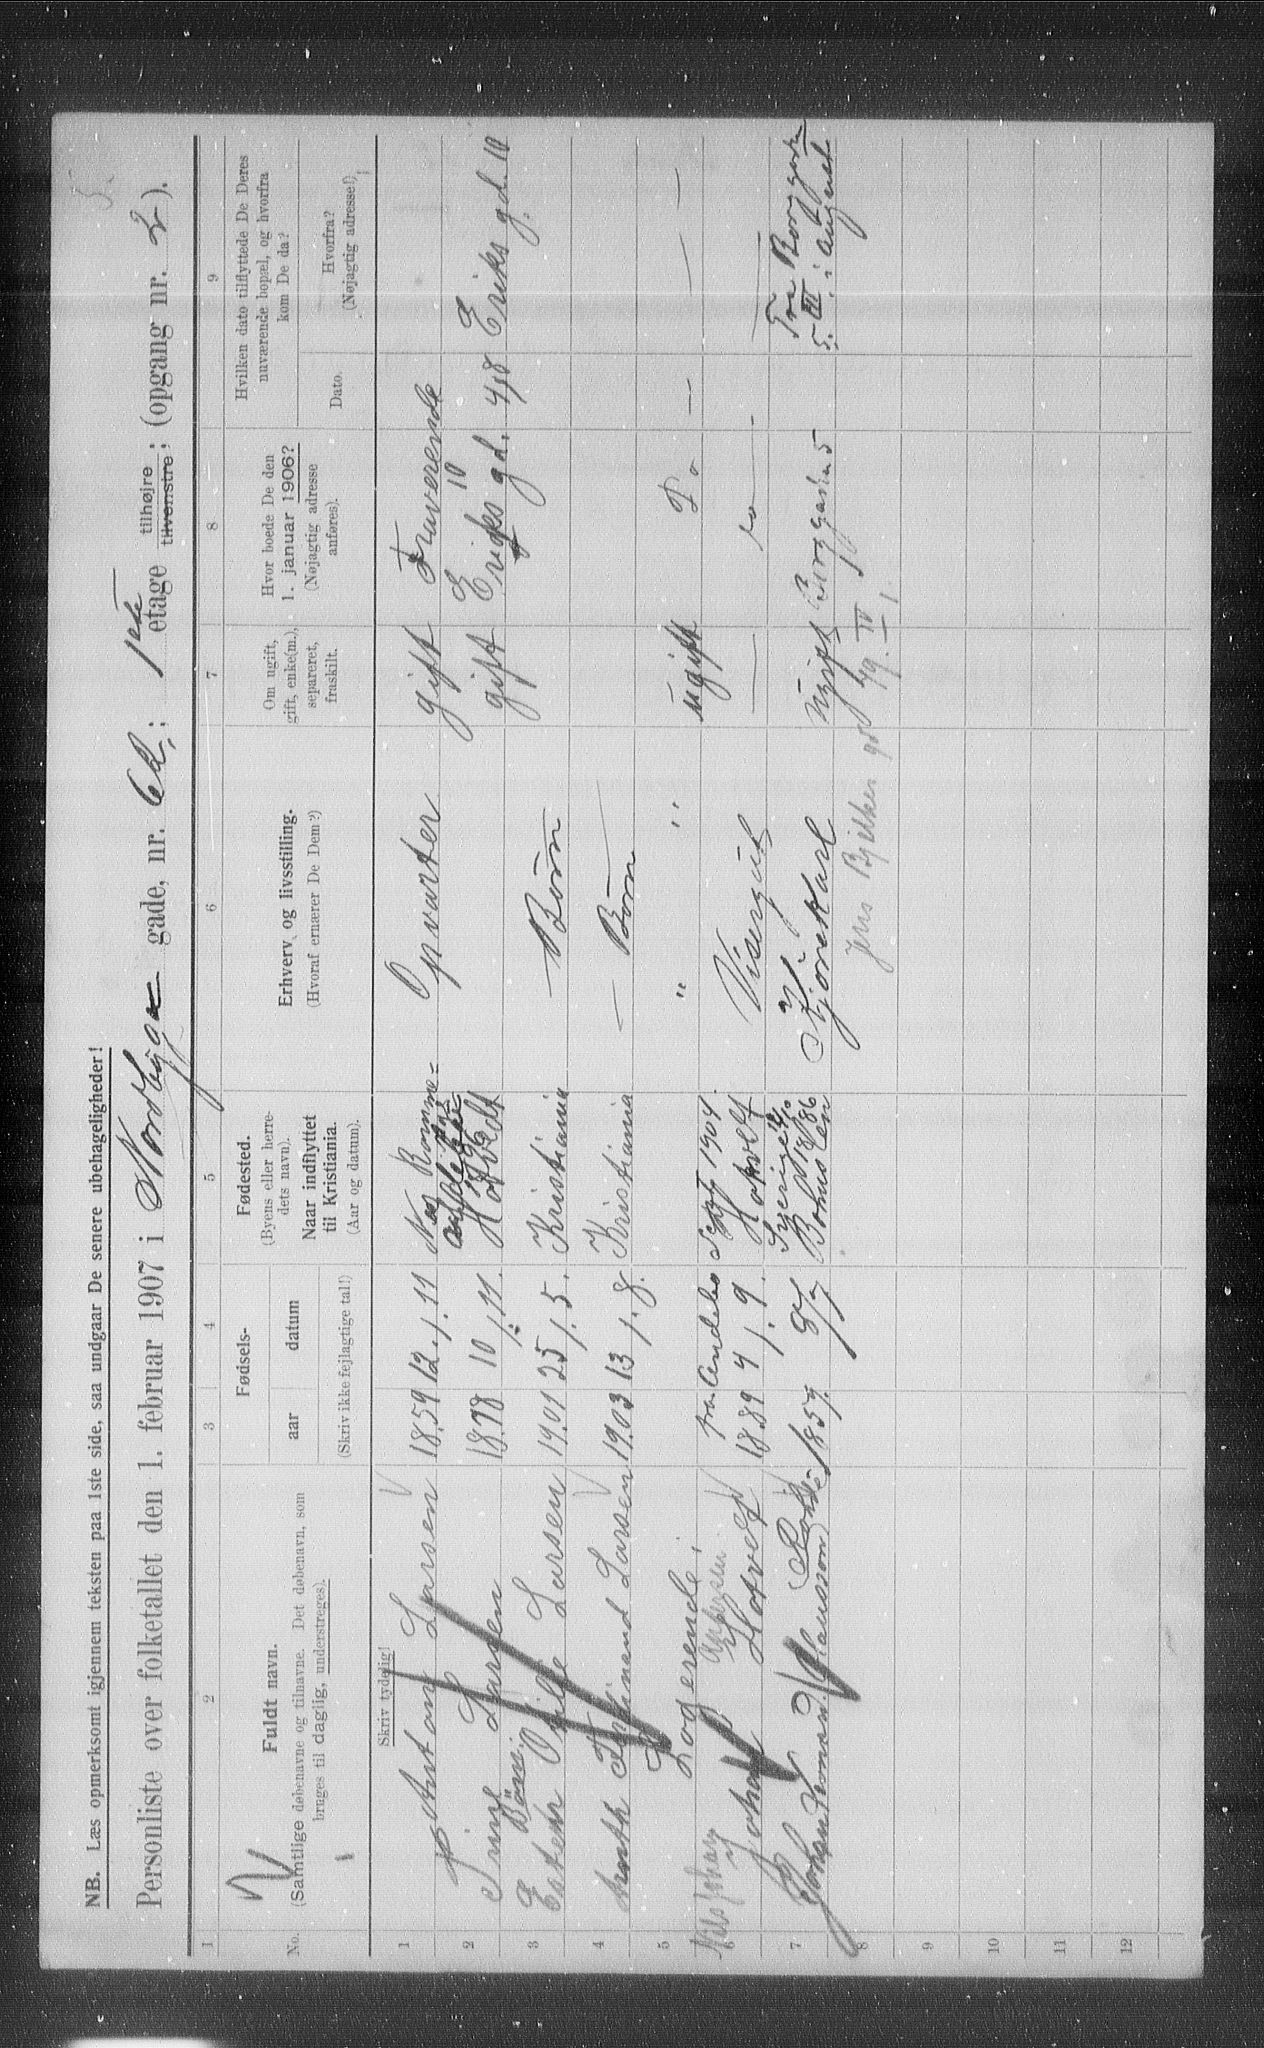 NB. Læs opmerksomt igjennem teksten paa 1ste side, saa undgaar De senere ubehageligheder!
Personliste over folketallet den 1. februar 1907 i Nordbyga gade, nr. 6b; 1ste etage tilhøjre tilvenstre; (opgang nr. 2).
1 2 3 4 5 6 7 8 9
No.
Fuldt navn.
(Samtlige døbenavne og tilnavne. Det døbenavn, som
bruges til daglig, understreges).
Fødsels-
aar datum
(Skriv ikke fejlagtige tal!)
Fødested.
(Byens eller herre-
dets navn).
Naar indflyttet
til Kristiania.
(Aar og datum).
Erhverv og livsstilling.
(Hvoraf ernærer De Dem?)
Om ugift,
gift, enke(m.),
separeret,
fraskilt.
Hvor boede De den
1. januar 1906?
(Nøjagtig adresse
anføres).
Hvilken dato tilflyttede De Deres
nuværende bopæl, og hvorfra
kom De da?
Dato.
Hvorfra?
(Nøjagtig adresse!)
Skriv tydelig!
1 Anton Larsen 1859 12/11 Opvarter gift Fraværende
2 Larsen 1878 10/11. Hotvedt gift Eriks gd. 10 4/8 Eriks gd. 10
Børn:
3 Larsen 1901 25/5. Kristiania Børn
4 Ferdinand Larsen 1903 13/8. Kristiania Børn
5 Logerende: " " ugift Do —
fra Sept 1904.
6 Johan Hotvedt 1889 4/9. Hotvedt Visergut — —
7 Johan 1857 8/7 Bohuslen Kjørekarl Ugift Borggaden 5 Fra Borggaden
5. III. i August
Jens Bjelkes gd 49. IV
8
9
10
11
12